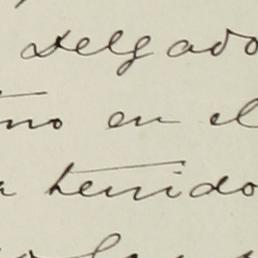 delgado
mo en el
a tenido